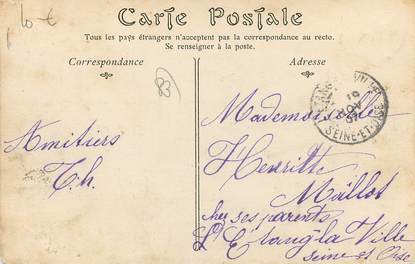 10 €
Carte Postale
Tous les pays étrangers n'acceptent pas la correspondance au recto.
Se renseigner à la poste.
Correspondance
Adresse
83
SEINE-ET-OISE
Amitiers
T. h.
Mademoiselle
Henriette
Maillot
chez ses parents
L'Etang la Ville
Seine et Oise